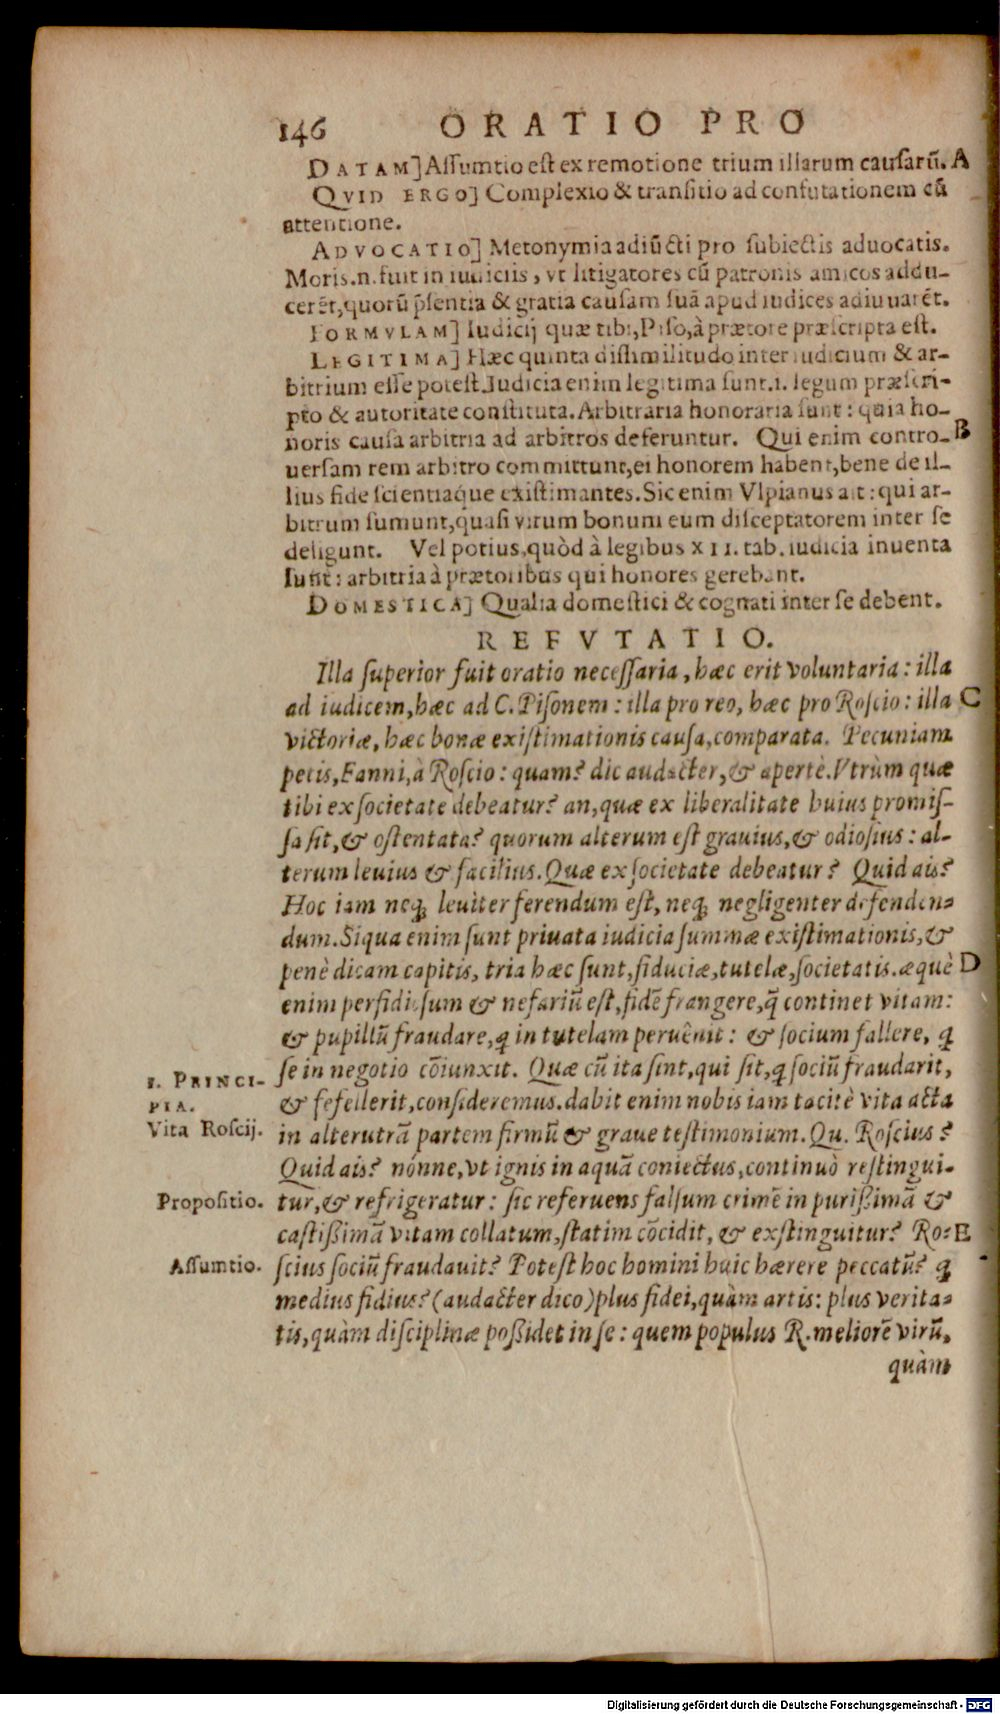 146 ORATIO PRO
DATAM] Aſſumtio eſt ex remotione trium illarum cauſarū. A
QVID ERGO] Complexio & tranſitio ad confutationem cū
attentione.
ADVOCATIO] Metonymia adiūcti pro ſubiectis aduocatis.
Moris.n.fuit in iudiciis, vt litigatores cū patronis amicos addu-
cerēt, quorū p̄ſentia & gratia cauſam ſuā apud iudices adiuuarēt.
FORMVLAM] Iudicij quæ tibi, Piſo, à prætore præſcripta eſt.
LEGITIMA] Hæc quinta diſſimilitudo inter iudicium & ar-
bitrium eſſe poteſt. Iudicia enim legitima ſunt.i. legum præſcri-
pto & autoritate conſtituta. Arbitraria honoraria ſunt: quia ho-
noris cauſa arbitria ad arbitros deferuntur. Qui enim contro- B
uerſam rem arbitro committunt, ei honorem habent, bene de il-
lius fide ſcientiaque exiſtimantes. Sic enim Vlpianus ait: qui ar-
bitrum ſumunt, quaſi virum bonum eum diſceptatorem inter ſe
deligunt. Vel potius, quòd à legibus XII. tab. iudicia inuenta
ſunt: arbitria à prætoribus qui honores gerebant.
DOMESTICA] Qualia domeſtici & cognati inter ſe debent.
REFVTATIO.
Illa ſuperior fuit oratio neceſſaria, hæc erit voluntaria: illa
ad iudicem, hæc ad C. Piſonem: illa pro reo, hæc pro Roſcio: illa C
victoriæ, hæc bonæ exiſtimationis cauſa, comparata. Pecuniam
petis, Fanni, à Roſcio: quam? dic audacter, & apertè. Vtrùm quæ
tibi ex ſocietate debeatur? an, quæ ex liberalitate huius promiſ-
ſa ſit, & oſtentata? quorum alterum eſt grauius, & odioſius: al-
terum leuius & facilius. Quæ ex ſocietate debeatur? Quid ais?
Hoc iam neq; leuiter ferendum eſt, neq; negligenter defenden-
dum. Siqua enim ſunt priuata iudicia ſummæ exiſtimationis, &
penè dicam capitis, tria hæc ſunt, fiduciæ, tutelæ, ſocietatis. æquè D
enim perfidioſum & nefariū eſt, fidē frangere, q̄ continet vitam:
& pupillū fraudare, q in tutelam peruēnit: & ſocium fallere, q
ſe in negotio cōiunxit. Quæ cū ita ſint, qui ſit, q ſociū fraudarit,
& fefellerit, conſideremus. dabit enim nobis iam tacitè vita acta
in alterutrā partem firmū & graue teſtimonium. Qu. Roſcius?
Quid ais? nónne, vt ignis in aquā coniectus, continuò reſtingui-
tur, & refrigeratur: ſic referuens falſum crimē in purißimā &
caſtißimā vitam collatum, ſtatim cōcidit, & exſtinguitur? Ro- E
ſcius ſociū fraudauit? Poteſt hoc homini huic hærere peccatū? q
medius fidius? (audacter dico) plus fidei, quàm artis: plus verita-
tis, quàm diſciplinæ poßidet in ſe: quem populus R. meliorē virū,
quàm
1. PRINCI-
PIA.
Vita Roſcij.
Propoſitio.
Aſſumtio.
Digitalisierung gefördert durch die Deutsche Forschungsgemeinschaft - DFG